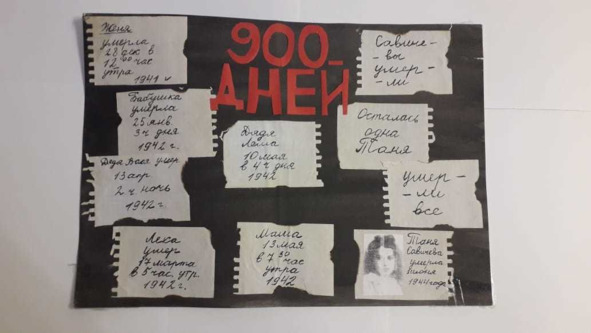 Женя
умерла
28 дек в
12 00 час
утра
1941 г
900
ДНЕЙ
Савиче-
вы
умер-
ли
Бабушка
умерла
25 янв
3 ч дня
1942 г.
Дядя
Лёша
10 мая
в 4 ч дня
1942
Осталась
одна
Таня
Дядя Вася умер
13 апр
2 ч ночь
1942 г.
умер-
ли
все
Лека
умер
17 марта
в 5 час. утр.
1942 г.
Мама
13 мая
в 7 30 час
утра
1942
Таня
Савичева
умерла
1944 года